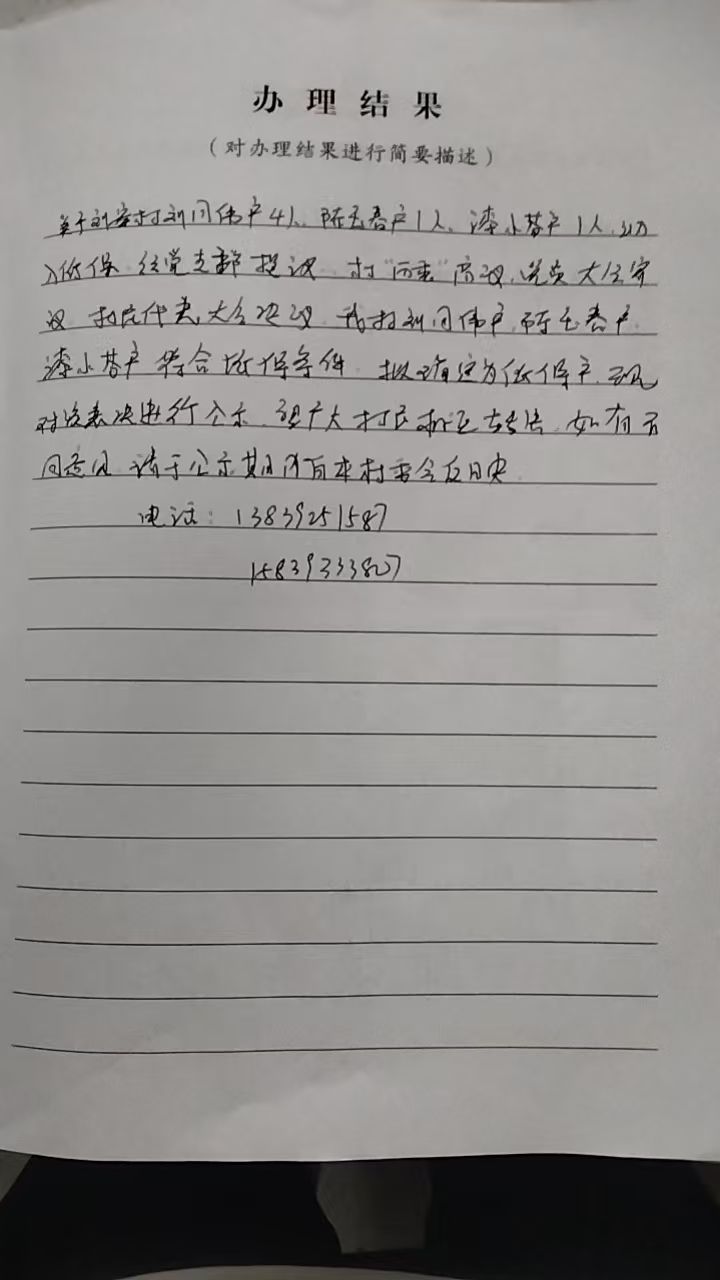 办理结果
（对办理结果进行简要描述）
关于刘寨村刘同伟户4人、陈玉春户1人、漆小芬户1人，
入低保，经党支部提议，村“两委”商议，党员大会审
议，村民代表大会决议，我村刘同伟户，陈玉春户，
漆小芬户符合低保条件，拟确定为低保户，现
对该表决进行公示，望广大村民相互转告，如有不
同意见，请于公示期内向本村委会反映
电话：13839251587
15839333807